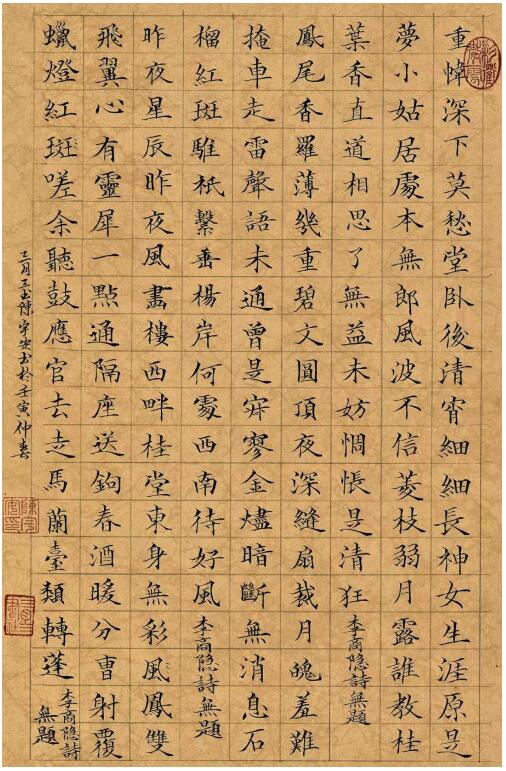 重幃深下莫愁堂臥後清宵細細長神女生涯原是
夢小姑居處本無郎風波不信菱枝弱月露誰教桂
葉香直道相思了無益未妨惆悵是清狂
李商隐詩無題
鳳尾香羅薄幾重碧文圓頂夜深縫扇裁月魄羞難
掩車走雷聲語未通曾是寂寥金燼暗斷無消息石
榴紅斑騅祇繫垂楊岸何處西南待好風
李商隐詩無題
昨夜星辰昨夜風畫樓西畔桂堂東身無彩風鳳雙
飛翼心有靈犀一點通隔座送鉤春酒暖分曹射覆
蠟燈紅斑嗟余聽鼓應官去走馬蘭臺類轉蓬
李商隐詩
無題
三月三陳宇安书於壬寅仲春